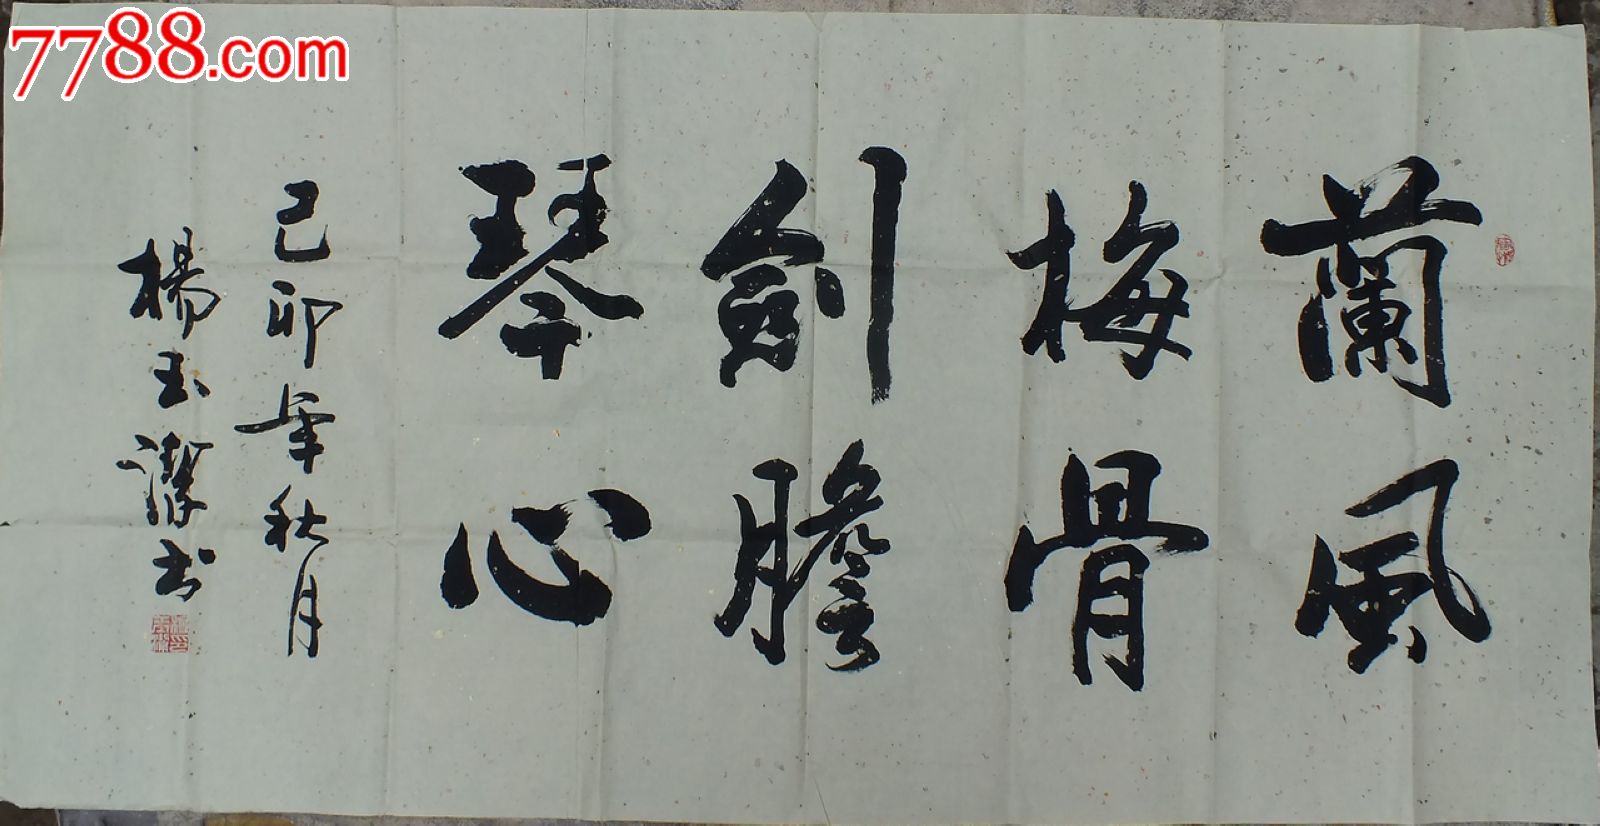 7788.com
蘭風
梅骨
劍膽
琴心
己卯年秋月
楊玉潔书